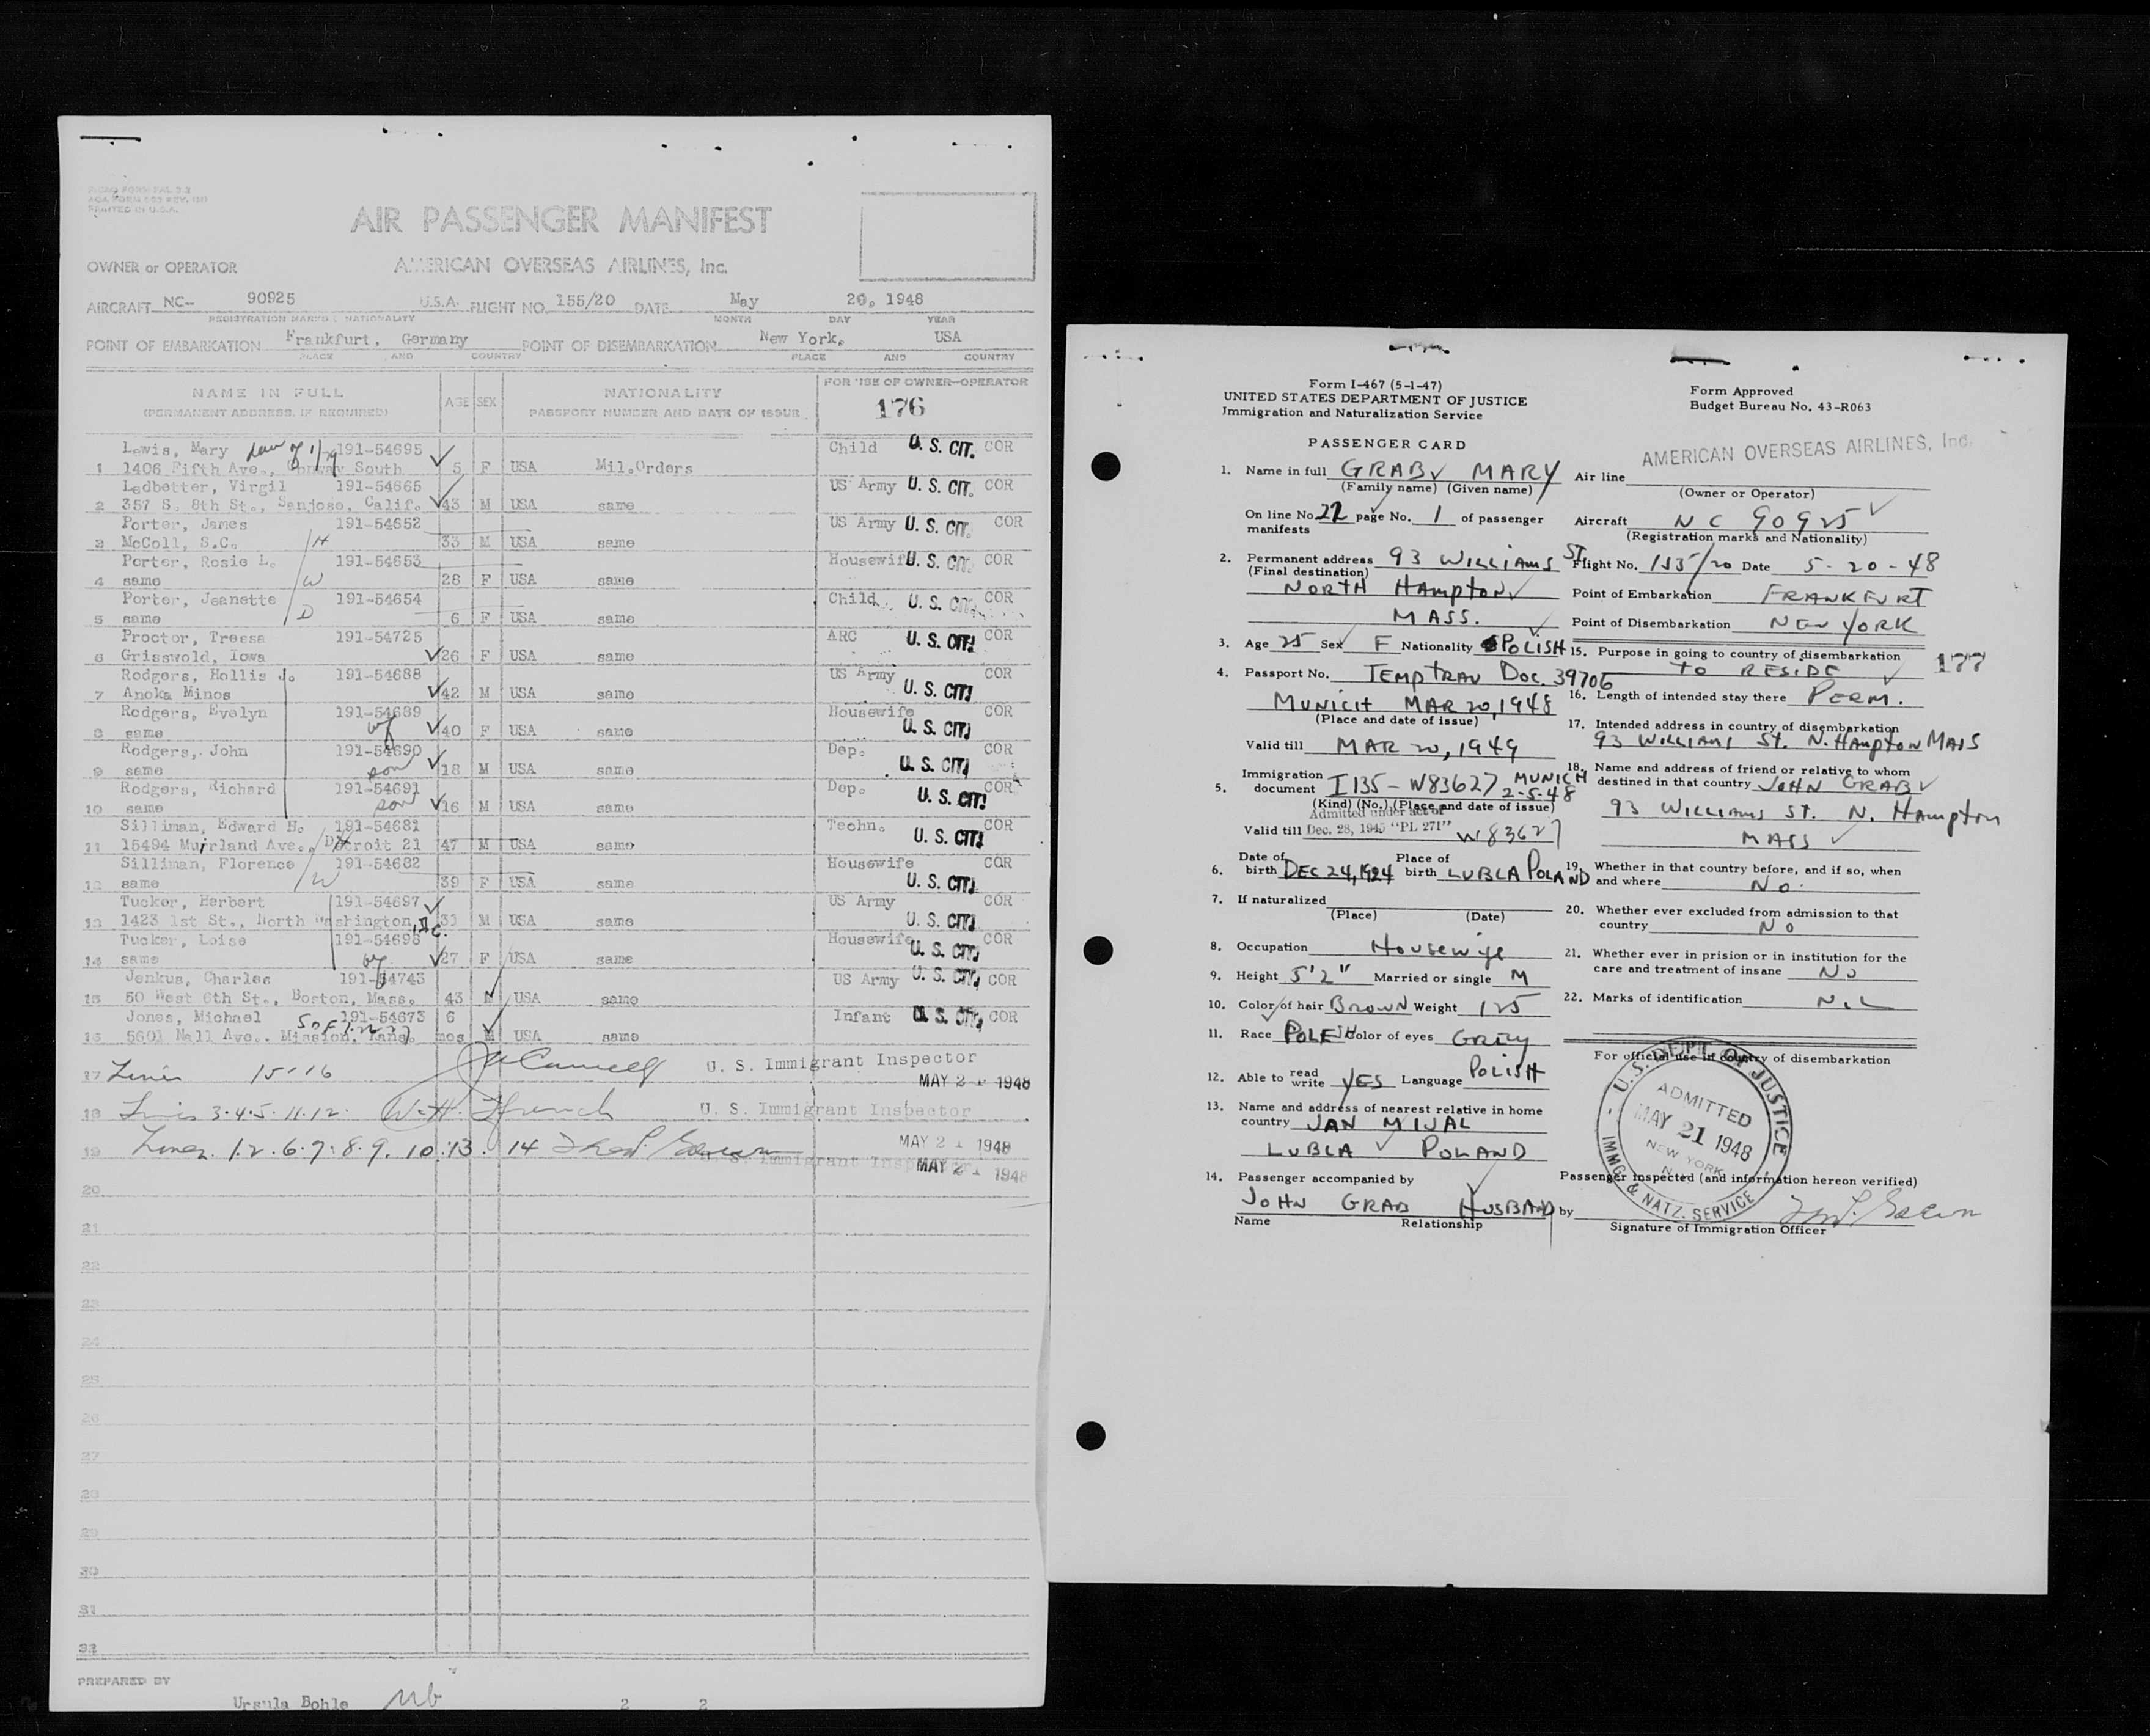 AIR PASSENGER MANIFEST
OWNER or OPERATOR AMERICAN OVERSEAS AIRLINES, Inc.
AIRCRAFT NC- 90925 U.S.A. FLIGHT NO. 155/20 DATE May 20, 1948
REGISTRATION MARKS NATIONALITY MONTH DAY YEAR
POINT OF EMBARKATION Frankfurt, Germany POINT OF DISEMBARKATION New York, USA
PLACE AND COUNTRY PLACE AND COUNTRY
NAME IN FULL AGE SEX NATIONALITY FOR USE OF OWNER-OPERATOR
(PERMANENT ADDRESS, IF REQUIRED) PASSPORT NUMBER AND DATE OF ISSUE 176
Lewis, Mary 191-54695 Child U. S. CIT. COR
1 1406 Fifth Ave., Conway South 5 F USA Mil.Orders
Ledbetter, Virgil 191-54665 US Army U. S. CIT. COR
2 357 S. 8th St., Sanjose, Calif. 43 M USA same
Porter, James 191-54652 US Army U. S. CIT. COR
3 McColl, S.C. H 33 M USA same
Porter, Rosie L. 191-54653 Housewife U. S. CIT. COR
4 same W 28 F USA same
Porter, Jeanette 191-54654 Child U. S. CIT. COR
5 same D 6 F USA same
Proctor, Tressa 191-54725 ARC U. S. CIT. COR
6 Grisswold, Iowa 26 F USA same
Rodgers, Hollis J. 191-54688 US Army U. S. CIT. COR
7 Anoka Minos 42 M USA same
Rodgers, Evelyn 191-54689 Housewife U. S. CIT. COR
8 same wf 40 F USA same
Rodgers, John 191-54690 Dep. U. S. CIT. COR
9 same son 18 M USA same
Rodgers, Richard 191-54691 Dep. U. S. CIT. COR
10 same son 16 M USA same
Silliman, Edward H. 191-54681 Techn. U. S. CIT. COR
11 15494 Muirland Ave., Detroit 21 47 M USA same
Silliman, Florence 191-54682 Housewife U. S. CIT. COR
12 same W 39 F USA same
Tucker, Herbert 191-54697 US Army U. S. CIT. COR
13 1423 1st St., North Washington, D.C. 33 M USA same
Tucker, Loise 191-54698 Housewife U. S. CIT. COR
14 same wf 27 F USA same
Jenkus, Charles 191-54743 US Army U. S. CIT. COR
15 50 West 6th St., Boston, Mass. 43 M USA same
Jones, Michael 191-54673 6 Infant U. S. CIT. COR
16 5601 Nall Ave., Mission, Kans. mos M USA same
17 Lines 15-16 U. S. Immigrant Inspector
MAY 21 1948
18 Lines 3.4.5.11.12. W.H. French U. S. Immigrant Inspector
MAY 21 1948
19 Lines 1.2.6.7.8.9.10.13.14 U. S. Immigrant Inspector
MAY 21 1948
20
21
22
23
24
25
26
27
28
29
30
31
32
PREPARED BY
Ursula Bohle 2 2
Form I-467 (5-1-47)
UNITED STATES DEPARTMENT OF JUSTICE
Immigration and Naturalization Service
Form Approved
Budget Bureau No. 43-R063
PASSENGER CARD
AMERICAN OVERSEAS AIRLINES, Inc.
1. Name in full GRAB MARY Air line
(Family name) (Given name) (Owner or Operator)
On line No. 22 page No. 1 of passenger manifests Aircraft NC 90925
(Registration marks and Nationality)
2. Permanent address 93 WILLIAMS ST. Flight No. 155/20 Date 5-20-48
(Final destination) NORTH HAMPTON Point of Embarkation FRANKFURT
MASS. Point of Disembarkation NEW YORK
3. Age 25 Sex F Nationality POLISH 15. Purpose in going to country of disembarkation
TO RESIDE 177
4. Passport No. TEMP TRAV DOC. 39706 16. Length of intended stay there PERM.
MUNICH MAR 20, 1948
(Place and date of issue) 17. Intended address in country of disembarkation
Valid till MAR 20, 1949 93 WILLIAMS ST. N. HAMPTON MASS
5. Immigration document I 135 - W83627 MUNICH 2-5-48 18. Name and address of friend or relative to whom
destined in that country JOHN GRAB
(Kind) (No.) (Place and date of issue) 93 WILLIAMS ST. N. HAMPTON
Admitted under act of
Valid till Dec. 28, 1945 "PL 271" W83627 MASS
6. Date of birth DEC 24, 1924 Place of birth LUBLA POLAND 19. Whether in that country before, and if so, when
and where NO.
7. If naturalized 20. Whether ever excluded from admission to that
(Place) (Date) country NO
8. Occupation Housewife 21. Whether ever in prision or in institution for the
9. Height 5'2" Married or single M care and treatment of insane NO
10. Color of hair BROWN Weight 125 22. Marks of identification NIL
11. Race POLISH Color of eyes GREY
For official use in country of disembarkation
12. Able to read write YES Language POLISH
13. Name and address of nearest relative in home
country JAN MIJAL
LUBLA POLAND
U.S. DEPT OF JUSTICE
ADMITTED
MAY 21 1948
NEW YORK
N.Y.
IMMG & NATZ. SERVICE
14. Passenger accompanied by Passenger inspected (and information hereon verified)
JOHN GRAB HUSBAND by
Name Relationship Signature of Immigration Officer